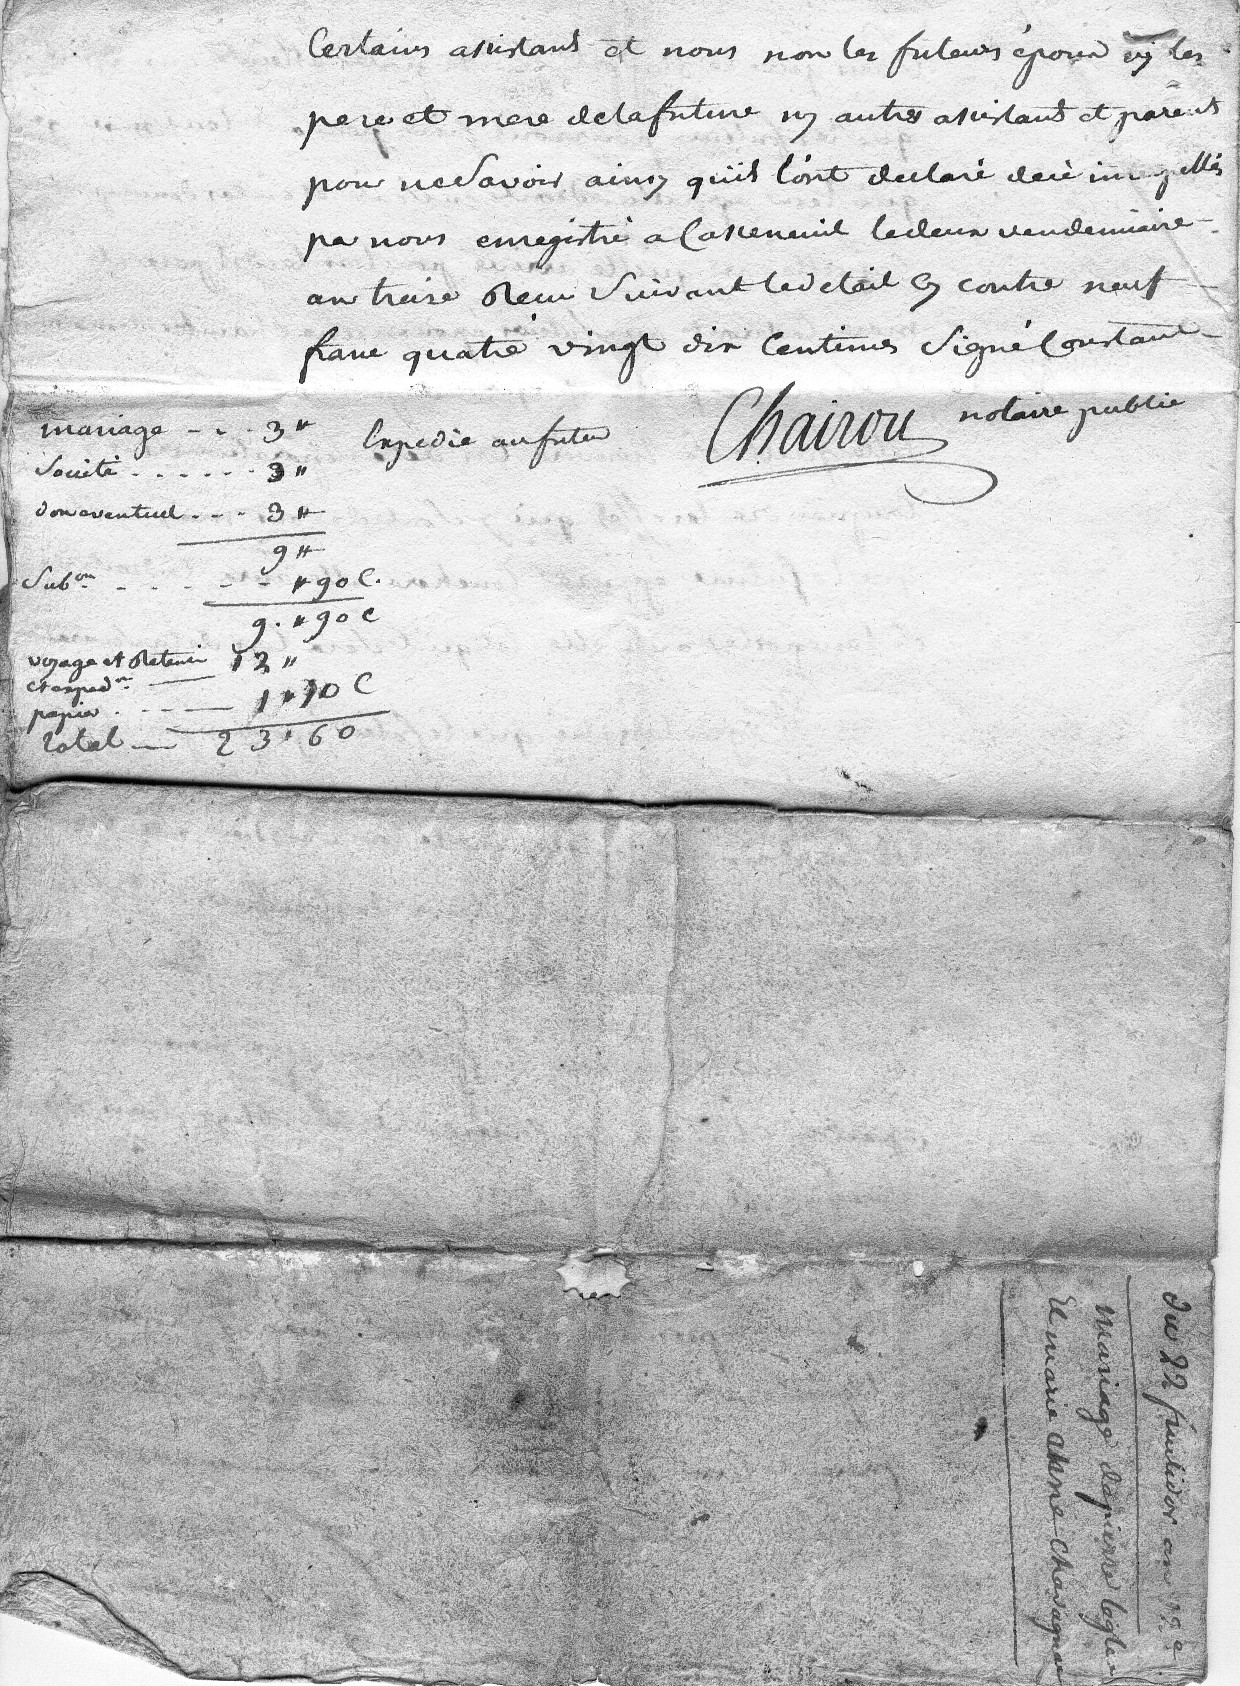 Certains assistant et nous non les futeurs époux ny les
pere et mere dela future ny autres assistants et parents
pour ne Savoir ainsy quïls l'ont declaré deïe interpellés
par nous enregistré a Casseneuil ledeux vendemiaire
an treize Reçu Suivant ledetail cy contre neuf
franc quatre vingt dix Centimes Signé Constant
Chairou notaire public
Expedie au futeur
mariage - - - 3 "
Societé . . . . . . 3 "
don eventuel . . . 3 "
9 "
Subon . - - - - - " 90 C.
9. " 90 C
voyage et Retenir 12 "
et exped.on
papier . - - - 1 " 70 C
Total — 23 . 60
Du 22 fructidor an 12e
Mariage de pierre
Et marie anne